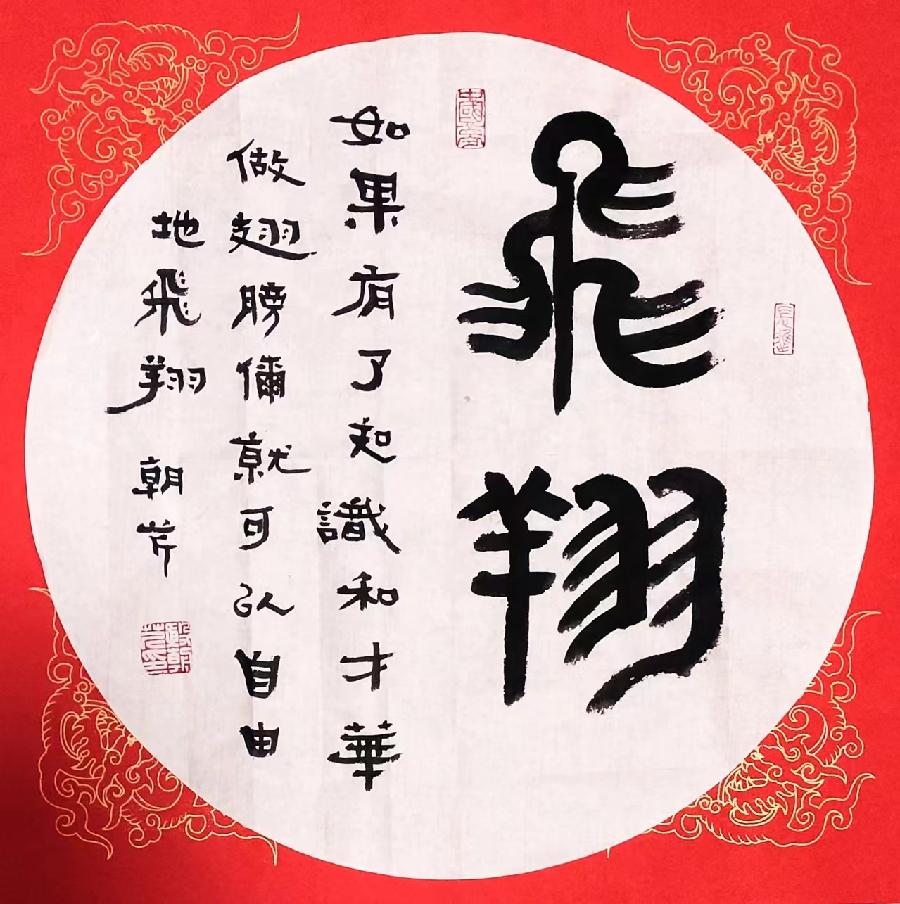 飛翔
如果有了知識和才華
做翅膀儞就可以自由
地飛翔 朝芹